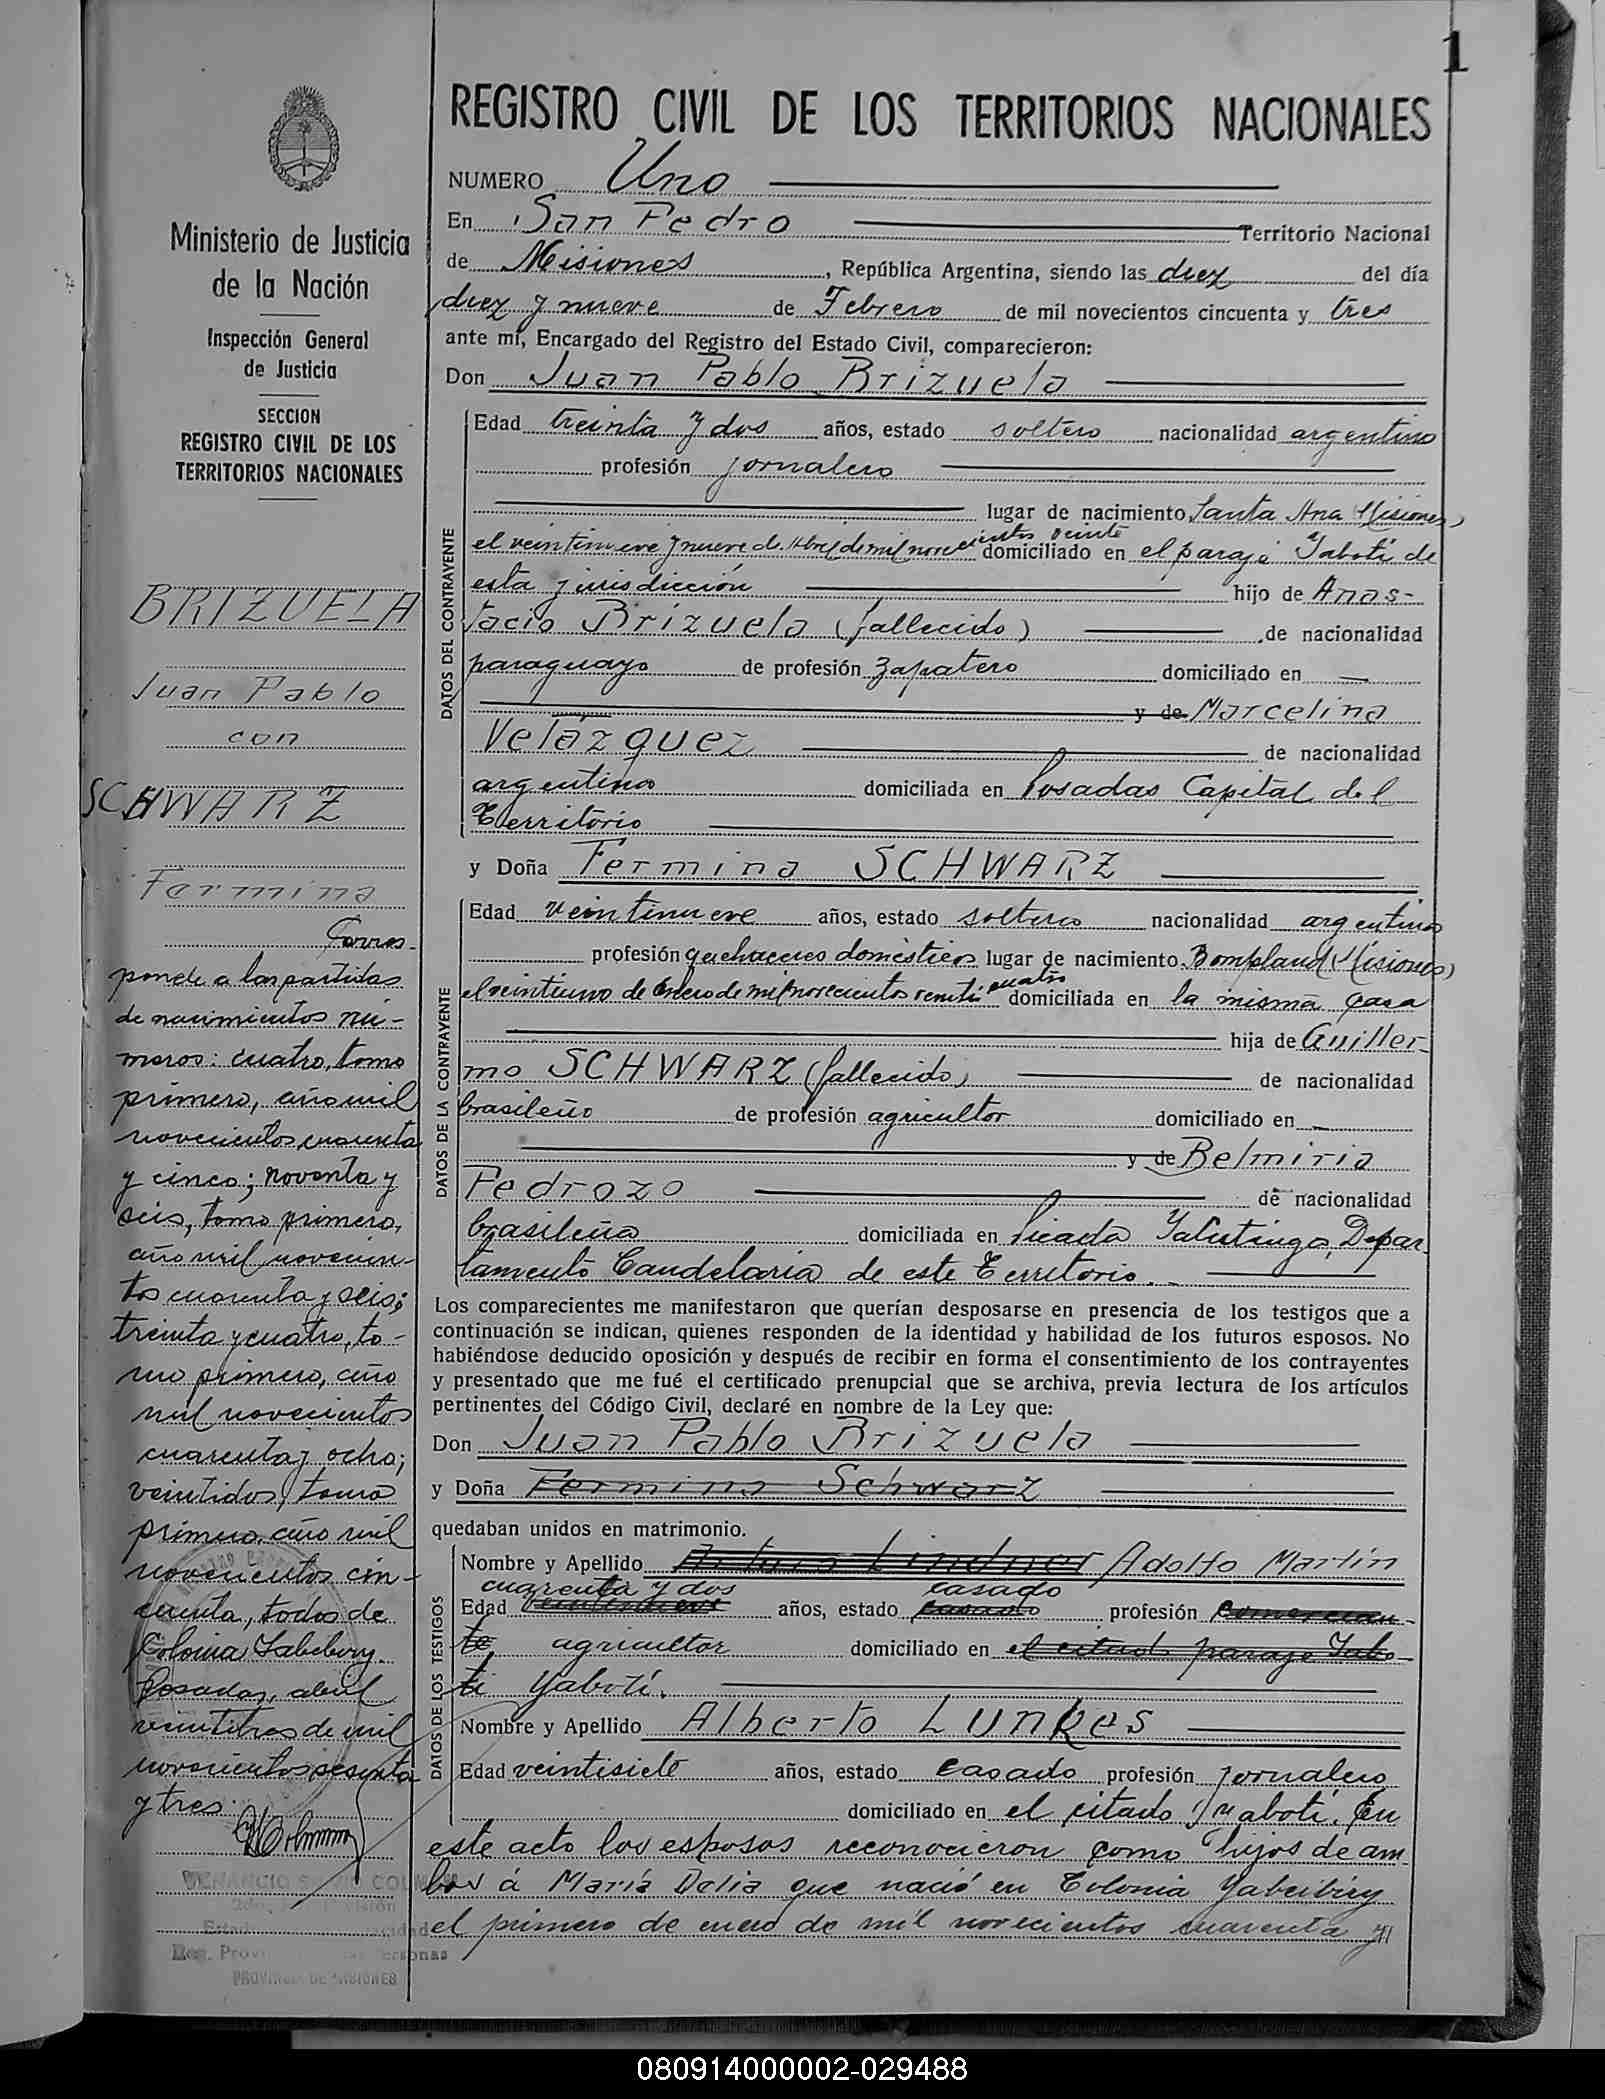 1
REGISTRO CIVIL DE LOS TERRITORIOS NACIONALES
NUMERO Uno
En San Pedro Territorio Nacional
de Misiones, República Argentina, siendo las diez del día
diez y nueve de Febrero de mil novecientos cincuenta y tres
ante mí, Encargado del Registro del Estado Civil, comparecieron:
Don Juan Pablo Brizuela
Ministerio de Justicia
de la Nación
Inspección General
de Justicia
SECCION
REGISTRO CIVIL DE LOS
TERRITORIOS NACIONALES
BRIZUELA
Juan Pablo
con
SCHWARZ
Fermina
Corres-
ponde a las partidas
de nacimientos nú-
meros: cuatro, tomo
primero, año mil
novecientos cuarenta
y cinco; noventa y
seis, tomo primero,
año mil novecien-
tos cuarenta y seis;
treinta y cuatro, to-
mo primero, año
mil novecientos
cuarenta y ocho;
veintidos, tomo
primero, año mil
novecientos cin-
cuenta, todos de
Colonia Yabebiry.
Posadas, abril
veintitres de mil
novecientos sesenta
y tres.
PROVINCIA DE MISIONES
DATOS DEL CONTRAYENTE
Edad treinta y dos años, estado soltero nacionalidad argentino
profesión jornalero
lugar de nacimiento Santa Ana (Misiones)
el veintinueve de Abril de mil novecientos veinte domiciliado en el paraje Yabotí de
esta jurisdicción hijo de Anas-
tacio Brizuela (fallecido) de nacionalidad
paraguayo de profesión zapatero domiciliado en —
y de Marcelina
Velázquez de nacionalidad
argentina domiciliada en Posadas Capital del
Territorio
y Doña Fermina SCHWARZ
DATOS DE LA CONTRAYENTE
Edad veintinueve años, estado soltera nacionalidad argentina
profesión quehaceres domésticos lugar de nacimiento Bompland (Misiones)
el veintiuno de Enero de mil novecientos veinticuatro domiciliada en la misma casa
hija de Guiller-
mo SCHWARZ (fallecido) de nacionalidad
brasileño de profesión agricultor domiciliado en —
y de Belmiria
Pedrozo de nacionalidad
brasileña domiciliada en Picada Yatutinga, Depar-
tamento Candelaria de este Territorio.-
Los comparecientes me manifestaron que querían desposarse en presencia de los testigos que a
continuación se indican, quienes responden de la identidad y habilidad de los futuros esposos. No
habiéndose deducido oposición y después de recibir en forma el consentimiento de los contrayentes
y presentado que me fué el certificado prenupcial que se archiva, previa lectura de los artículos
pertinentes del Código Civil, declaré en nombre de la Ley que:
Don Juan Pablo Brizuela
y Doña Fermina Schwarz
quedaban unidos en matrimonio.
DATOS DE LOS TESTIGOS
Nombre y Apellido Arturo Lindner Adolfo Martin
cuarenta y dos casado
Edad veintinueve años, estado casado profesión comercian-
te agricultor domiciliado en el citado paraje Yabo-
tí Yabotí.
Nombre y Apellido Alberto Lunkes
Edad veintisiete años, estado casado profesión jornalero
domiciliado en el citado Yabotí. En
este acto los esposos reconocieron como hijos de am-
bos á María Delia que nació en Colonia Yabebiry
el primero de enero de mil novecientos cuarenta y
080914000002-029488